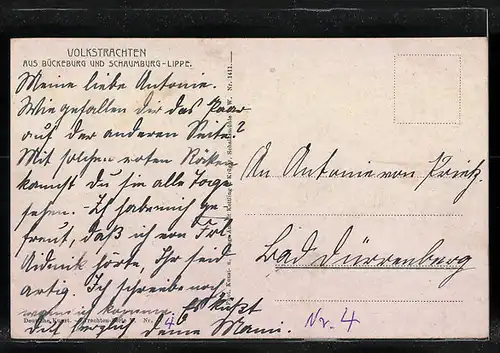 VOLKSTRACHTEN
AUS BÜCKEBURG UND SCHAUMBURG-LIPPE.
Meine liebe Antonie.
Wie gefallen dir das Paar
auf der anderen Seite?
Mit solchen roten Röcken
kannst du sie alle Tage
sehen. Ich habe mich ge-
freut, daß ich von Frl.
hörte, Ihr seid
artig. Ich schreibe noch
wenn ich komme. Es küßt
dich herzlich deine Mami.
An Antonie von
Bad Dürrenberg
Nr. 4
Nr. 1411.